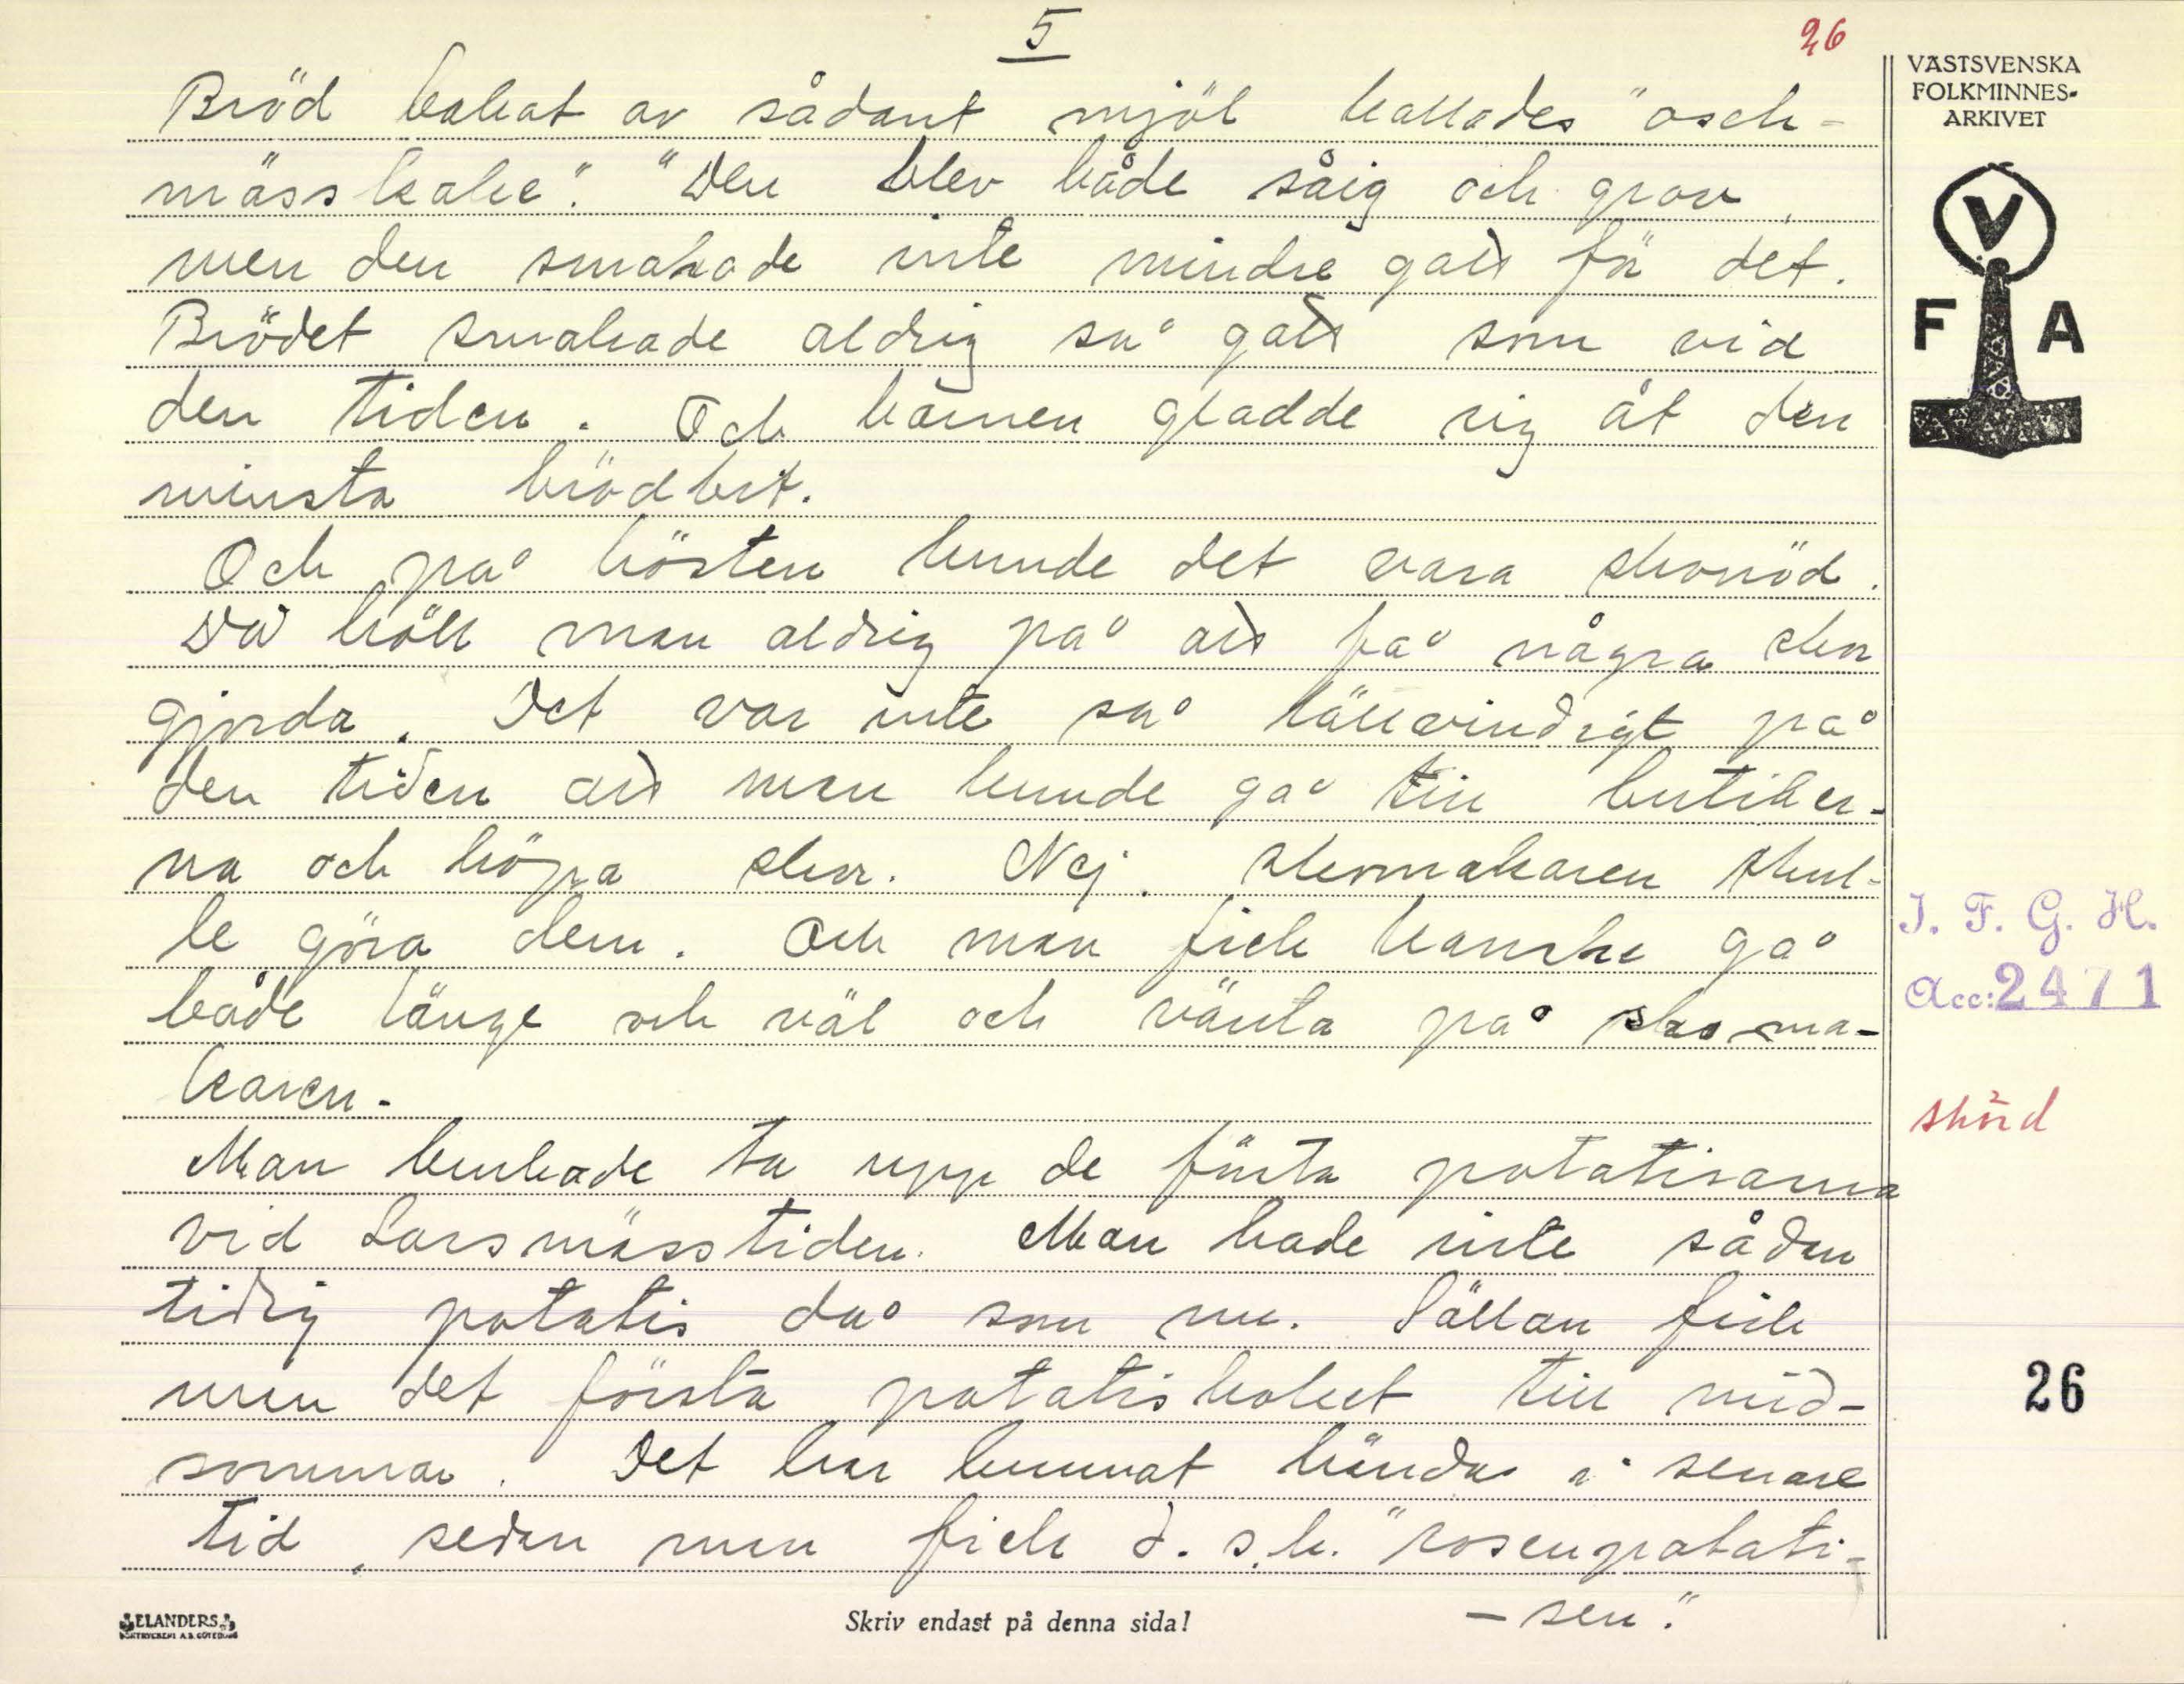 5
26
Bröd bakat av sådant mjöl kallades "osch-
mässkake". "Den blev både såig och grov,
men den smakade inte mindre gott för det.
Brödet smakade aldrig så gott som vid
den tiden. Och barnen gladde sig åt den
minsta brödbit.
Och på hösten kunde det vara skonöd.
Då höll man aldrig på att få några skor
gjorda. Det var inte så lättvindigt på
den tiden att man kunde gå till butiker-
na och köpa skor. Nej. Skomakaren skul-
le göra dem. Och man fick kanske gå
både länge och väl och vänta på skoma-
karen.
Man brukade ta upp de första potatisarna
vid Larsmässtiden. Man hade inte sådan
tidig potatis då som nu. Sällan fick
man det första potatiskoket till mid-
sommar. Det har kunnat hända i senare
tid, sedan man fick d. s.k. "rosenpotati-
-sen".
VÄSTSVENSKA
FOLKMINNES-
ARKIVET
V
F A
I. F. G. H.
Acc: 2471
skörd
26
ELANDERS
BOKTRYCKERI A.B. GÖTEBORG
Skriv endast på denna sida!